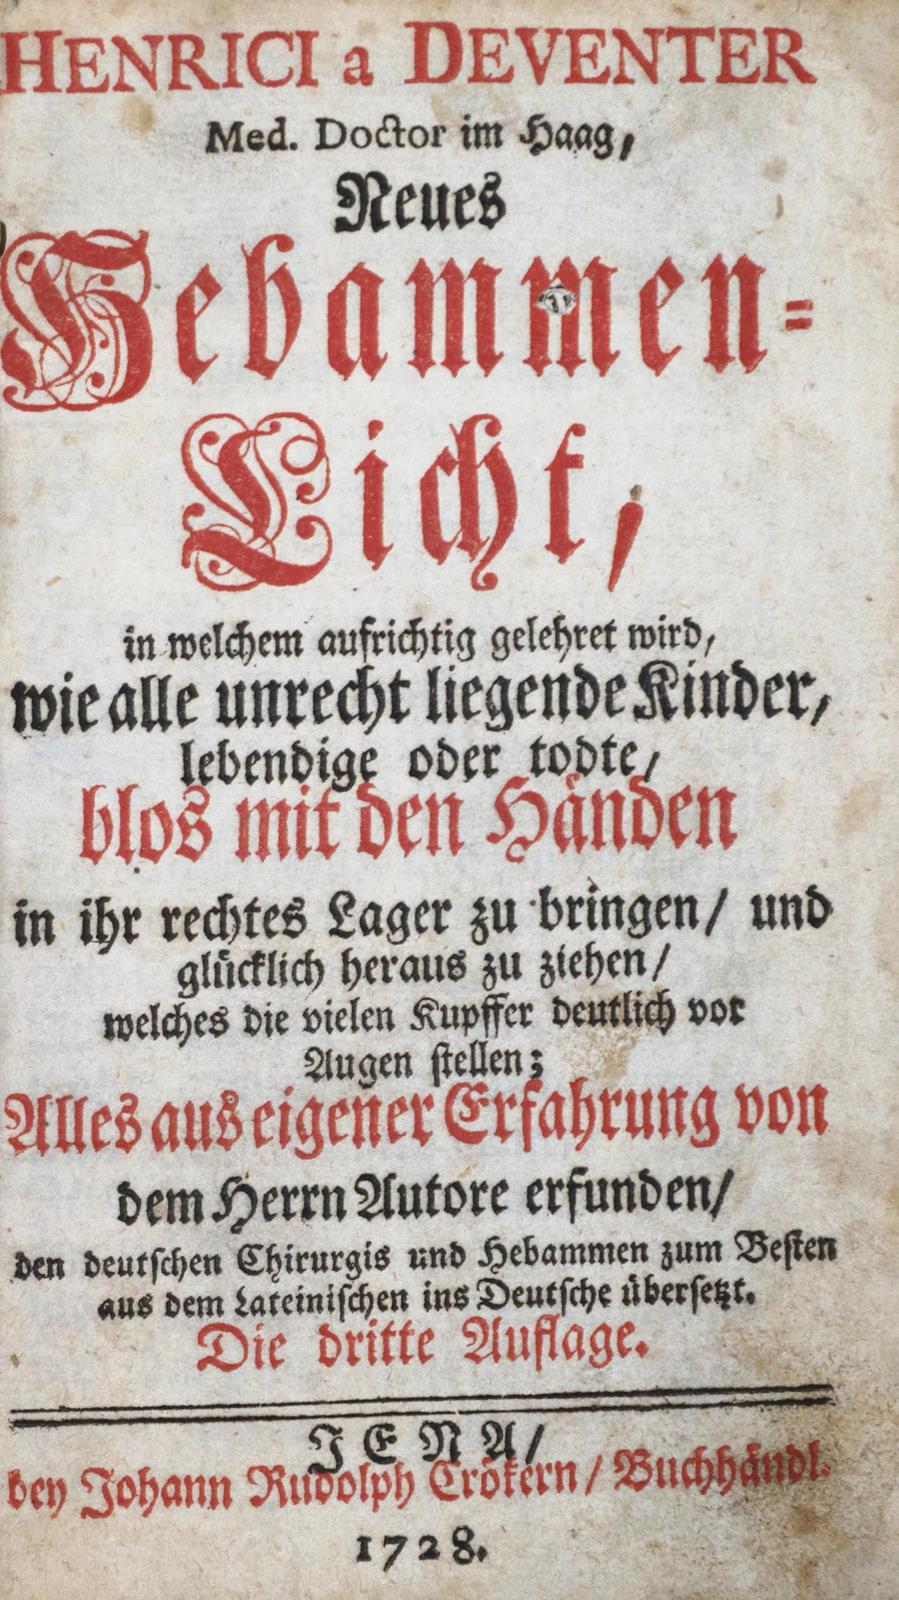 HENRICI a DEVENTER
Med. Doctor im Haag,
Neues
Hebammen-
Licht,
in welchem aufrichtig gelehret wird,
wie alle unrecht liegende Kinder,
lebendige oder todte,
blos mit den Händen
in ihr rechtes Lager zu bringen/ und
glücklich heraus zu ziehen/
welches die vielen Kupffer deutlich vor
Augen stellen;
Alles aus eigener Erfahrung von
dem Herrn Autore erfunden/
den deutschen Chirurgis und Hebammen zum Besten
aus dem Lateinischen ins Deutsche übersetzt.
Die dritte Auflage.
JENA/
bey Johann Rudolph Crökern/ Buchhändl.
1728.